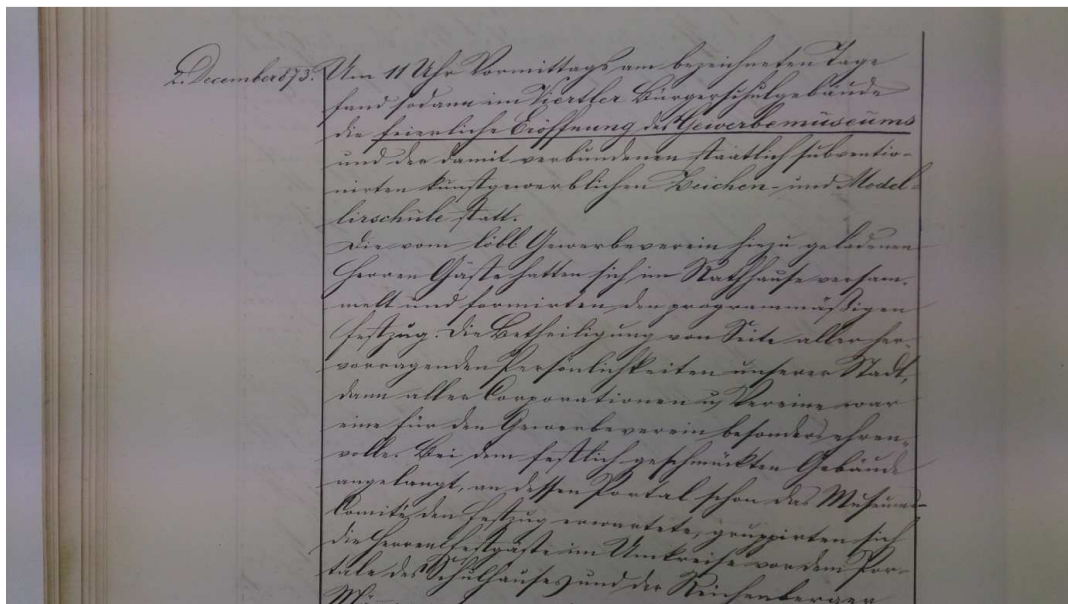 2. December 873. Um 11 Uhr Vormittags am bezeichneten Tage
fand sodann im Viertler Bürgerschulgebäude
die feierliche Eröffnung des Gewerbemuseums
und der damit verbundenen staatlich subventio-
nirten kunstgewerblichen Zeichen- und Model-
lirschule statt.
Die vom löbl. Gewerbeverein hiezu geladenen
Herren Gäste hatten sich im Rathhause versam-
melt und formirten den programmäßigen
Festzug. Die Betheiligung von Seite aller her-
vorragenden Persönlichkeiten unserer Stadt,
dann aller Corporationen u. Vereine war
eine für den Gewerbeverein besonders ehren-
volle. Bei dem festlich geschmückten Gebäude
angelangt, an dessen Portal schon das Museums-
Comité den Festzug erwartete, gruppirten sich
die Herren Festgäste im Umkreise vor dem Por-
tale des Schulhauses und der Reichenberger